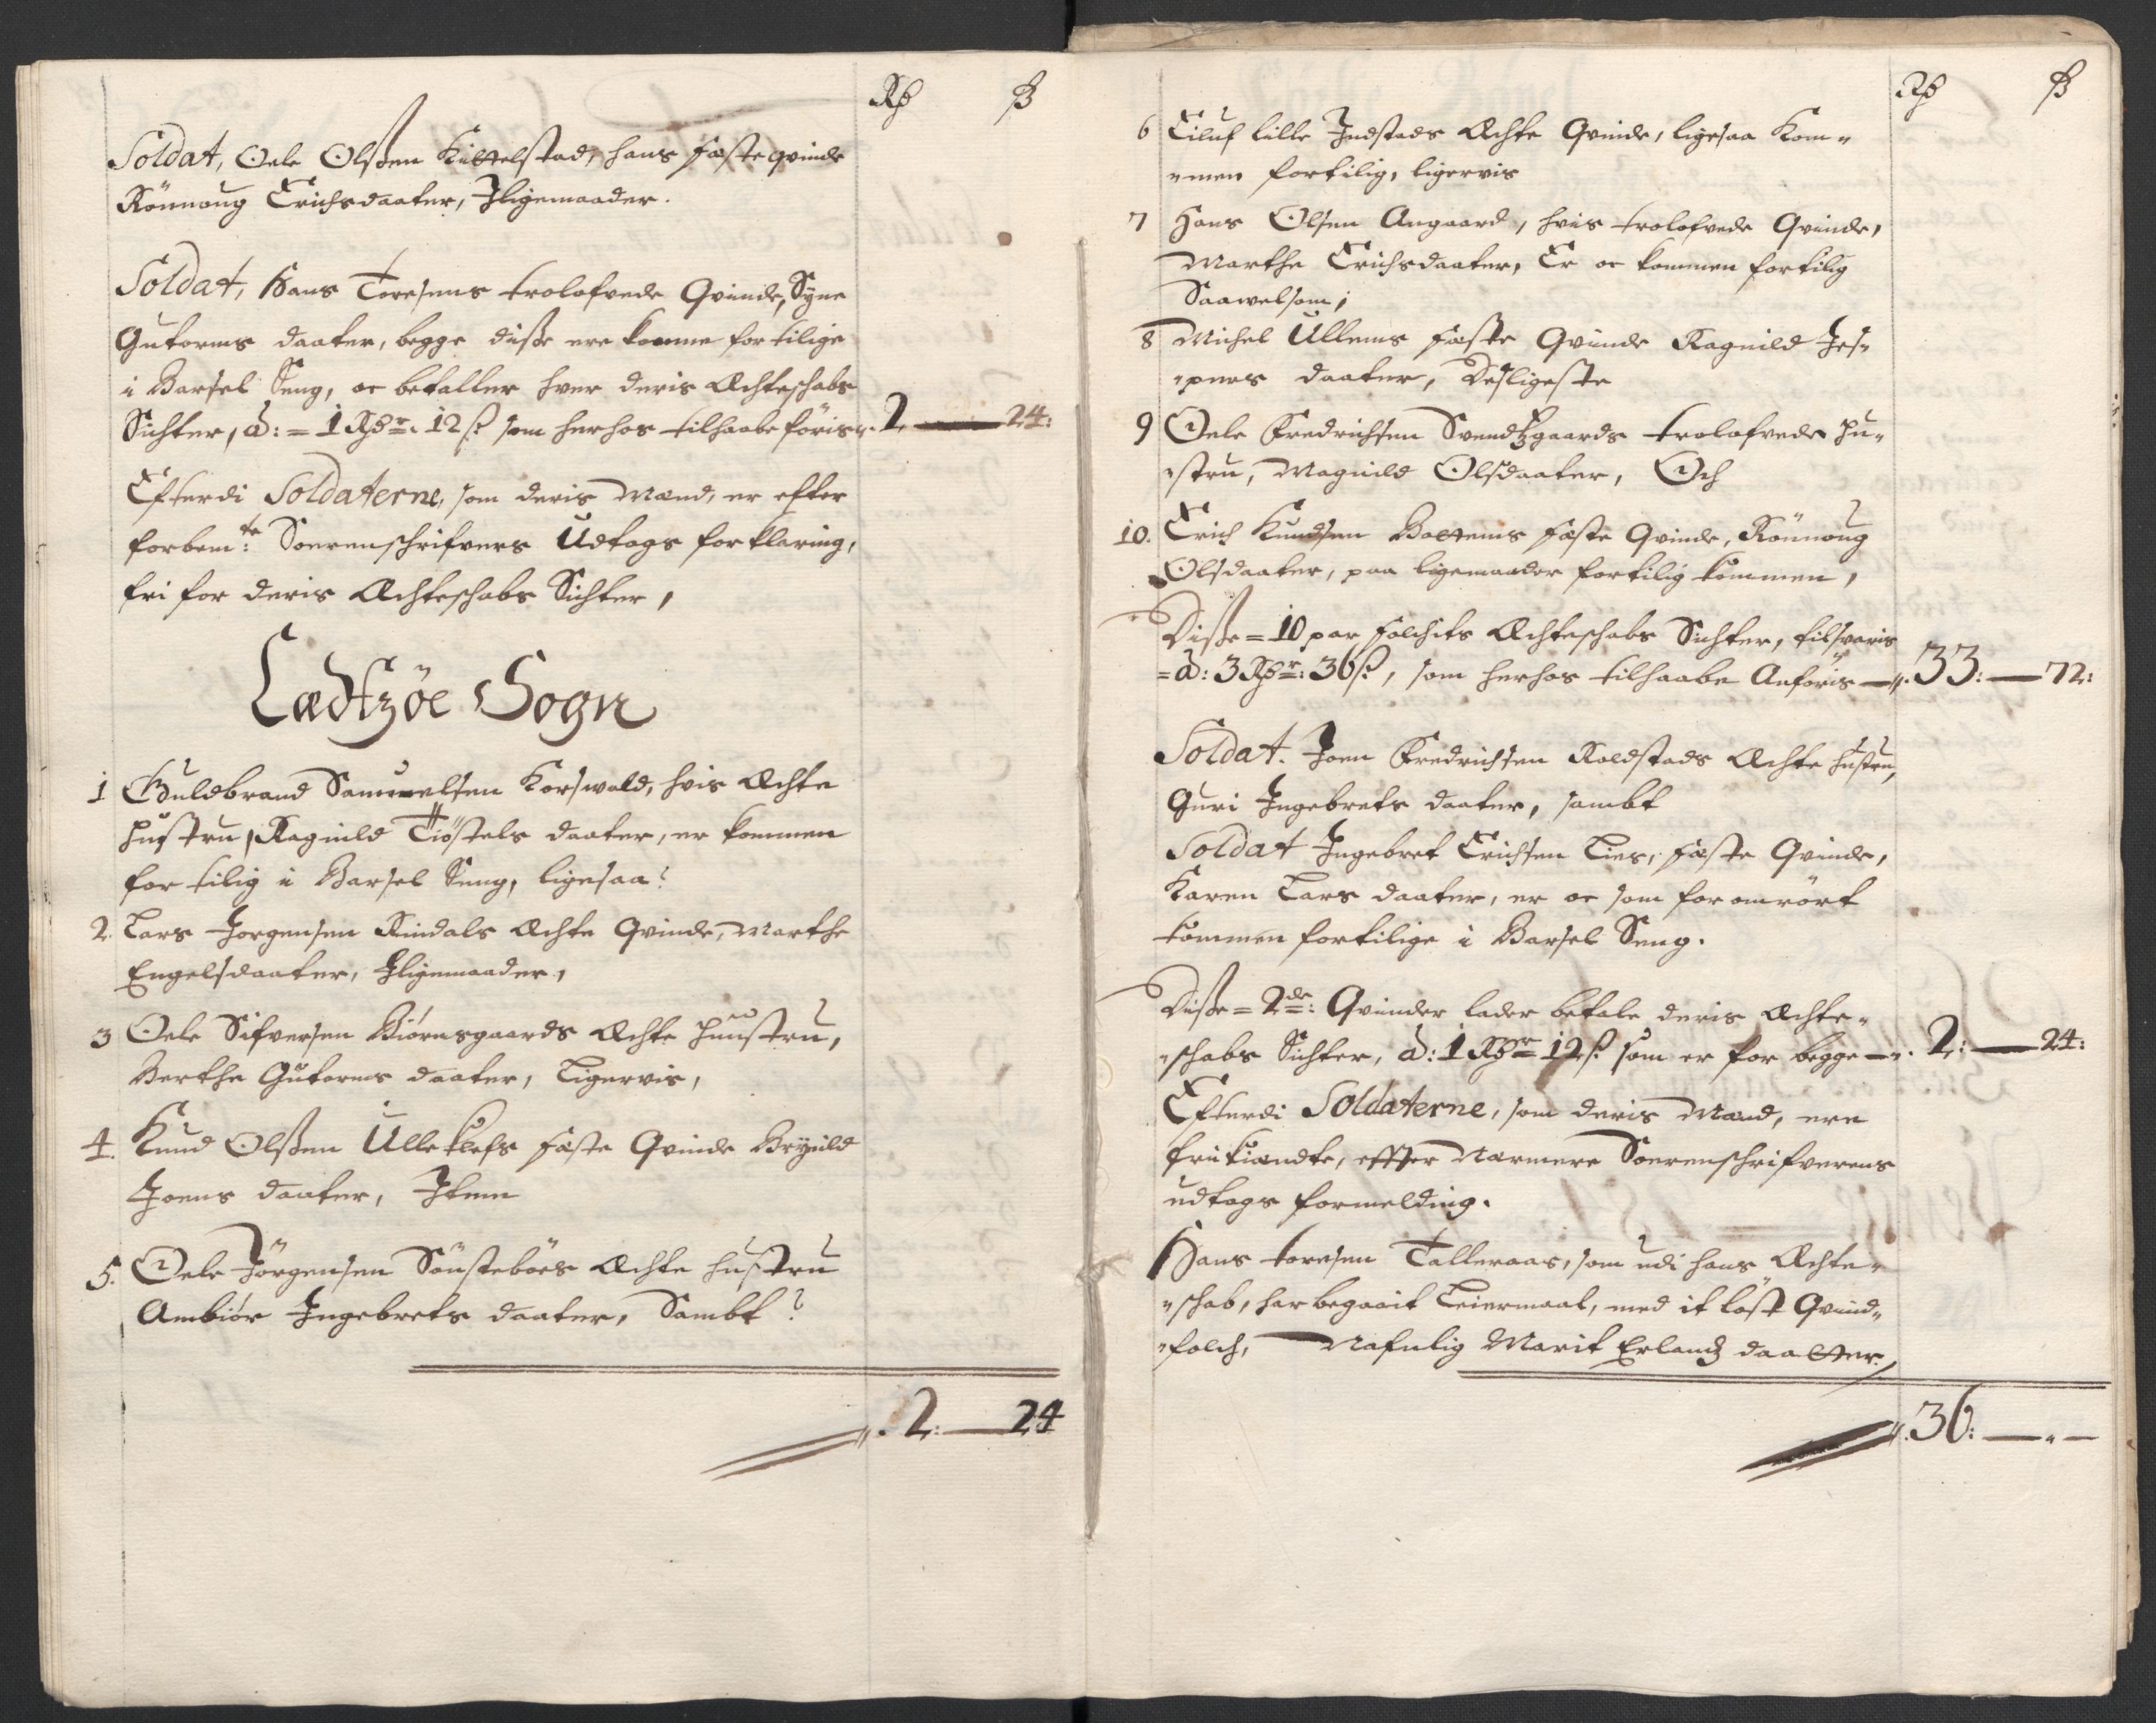 Rd ß
Soldat, Oele Olßen Kittelstad, hans fæsteqvinde
Rönnoug Erichsdaater, Jligemaader.
Soldat, Hans Toresens trolofvede Qvinde, Syne
Gutorms daater, begge diße ere komne for tilige
i Barsel Seng, oc betaller hver deris Ächteschabs
Sichter, â: = 1 Rdr: 12 ß som herhos tilhaabe föris 2 — 24:
Efterdi Soldaterne, som deris Mænd, er efter
forbemte: Sorenschrifvers Udtogs forklaring,
fri for deris Ächteschabs Sichter,
Lædtzöe Sogn
1 Guldbrand Samuelsen Korsvold, hvis Ächte
hustru, Ragnild Tiöstels daater, er kommen
for tilig i Barsel Seng, ligesaa
2. Lars Jorgensen Rindals Ächte Qvinde, Marthe
Engelsdaater, Jligemaader,
3 Oele Sifversen Biörnsgaards Ächte huustru,
Berthe Gutorms daater, Ligervis,
4. Knud Olßen Ulleklefs fæste Qvinde Brynild
Joens daater, Item
5. Oele Jörgensen Sönsteböes Ächte hustru
Ambiör Jngebrets daater, Sambt
2: — 24
Rd ß
6 Eiluf lille Jndstads Ächte Qvinde, ligesaa kom-
-men fortilig, ligervis
7 Hans Olsen Angaard, hvis trolofvede Qvinde,
Marthe Erichsdaater, Er oc kommen fortilig
Saawelsom;
8 Michel Ullems fæste Qvinde Ragnild Jes-
-pers daater, Desligeste
9 Oele Fredrichsen Svendtzgaards trolofvede hu-
-stru, Magnild Olsdaater, Och
10. Erich Knudsen Bottems fæste Qvinde, Rönnoug
Olsdaater, paa ligemaader fortilig kommen,
Diße = 10 par folchits Ächteschabs Sichter, tilsvaris
= â: 3 Rdr: 36 ß, som herhos tilhaabe Anföris — 33: — 72:
Soldat. Joen Fredrichsen Roldstads Ächte hustru,
Guri Jngebrets daater, sambt
Soldat Jngebret Erichsen Lies, fæste Qvinde,
Karen Lars daater, er oc som for omrört
kommen fortilige i Barsel Seng.
Diße = 2de: Qvinder lader betale deris Ächte-
-schabs Sichter, â: 1 Rdr 12 ß som er for begge — 2: — 24:
Efterdi Soldaterne, som deris Mænd, ere
frikiændte, effter Nærmere Sorenschrifverens
udtogs formelding.
Hans toresen Talleraas, som udi hans Ächte-
-schab, har begaait Leiermaal, med it löst Qvind-
-folch, Nafnlig Marit Erlandz daatter,
36: — " —